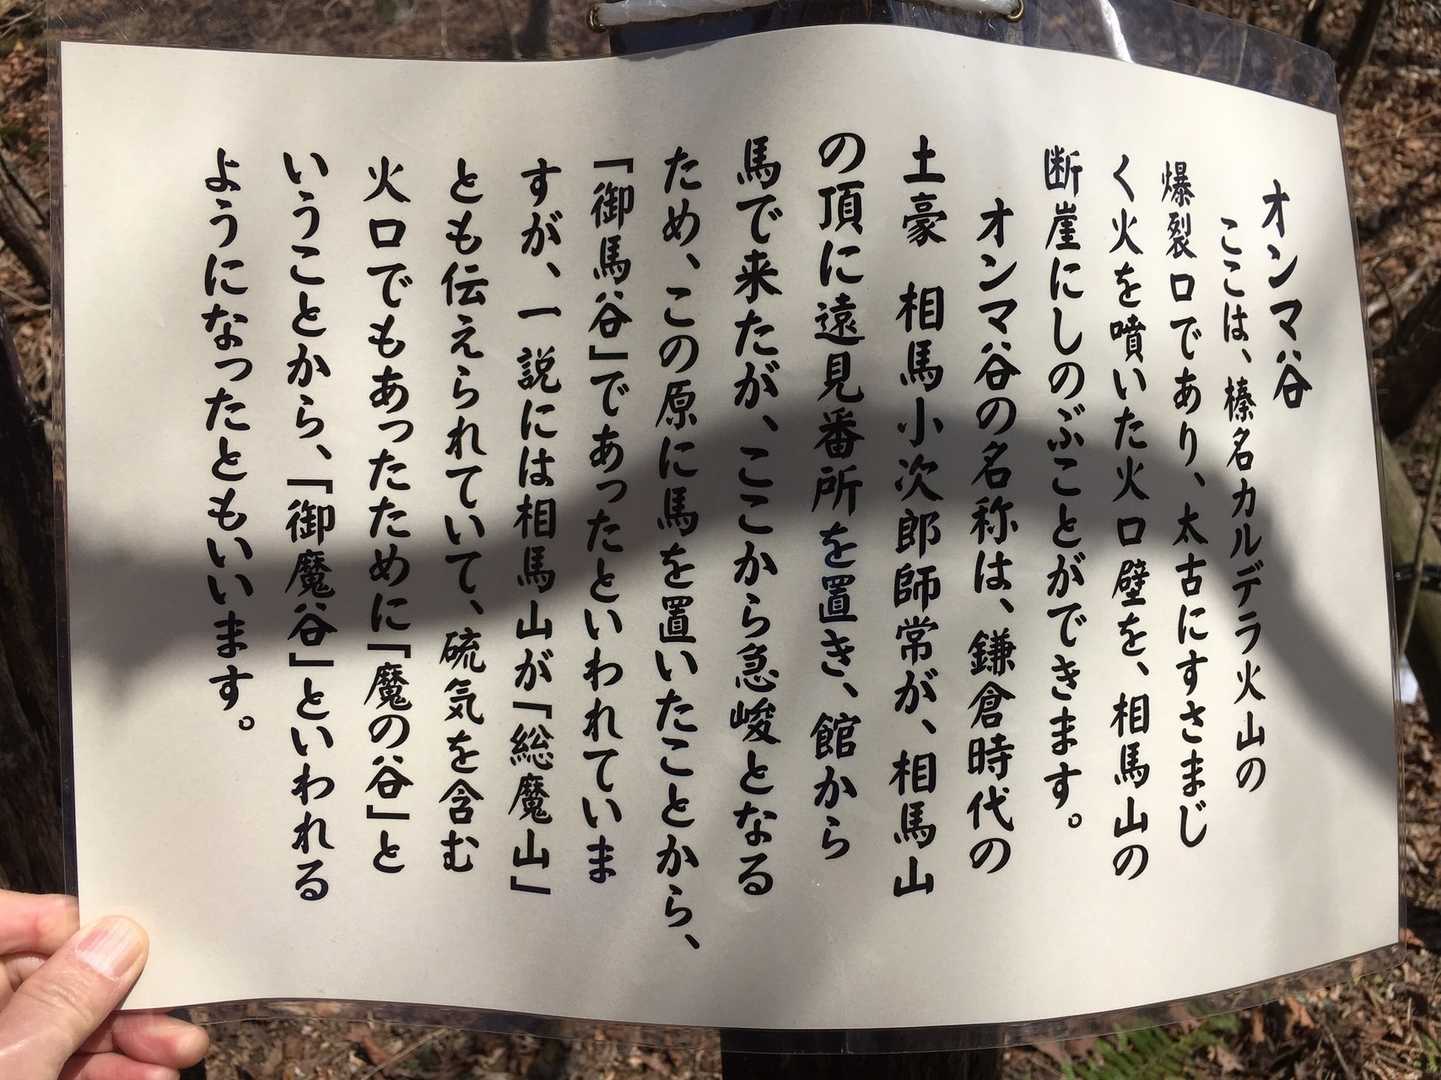 オンマ谷
ここは、榛名カルデラ火山の
爆裂口であり、太古にすさまじ
く火を噴いた火口壁を、相馬山の
断崖にしのぶことができます。
オンマ谷の名称は、鎌倉時代の
土豪　相馬小次郎師常が、相馬山
の頂に遠見番所を置き、館から
馬で来たが、ここから急峻となる
ため、この原に馬を置いたことから、
「御馬谷」であったといわれていま
すが、一説には相馬山が「総魔山」
とも伝えられていて、硫気を含む
火口でもあったために「魔の谷」と
いうことから、「御魔谷」といわれる
ようになったともいいます。